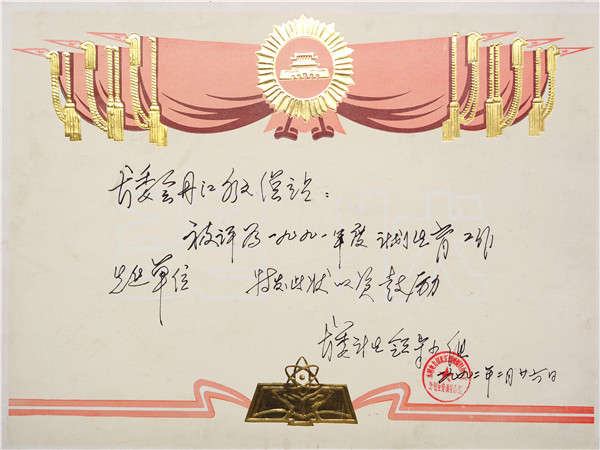 长委会丹江水文总站：
被评为一九九一年度计划生育工作
先进单位 特发此状以资鼓励
长委计生领导小组
一九九二年二月廿六日